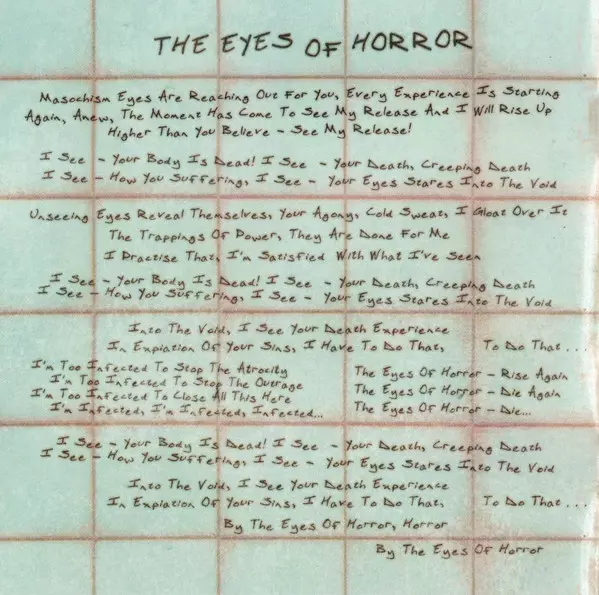 THE EYES OF HORROR
Masochism Eyes Are Reaching Out For You, Every Experience Is Starting
Again, Anew, The Moment Has Come To See My Release And I Will Rise Up
Higher Than You Believe – See My Release!
I See – Your Body Is Dead! I See – Your Death, Creeping Death
I See – How You Suffering, I See – Your Eyes Stares Into The Void
Unseeing Eyes Reveal Themselves, Your Agony, Cold Sweat, I Gloat Over It
The Trappings Of Power, They Are Done For Me
I Practise That, I'm Satisfied With What I've Seen
I See – Your Body Is Dead! I See – Your Death, Creeping Death
I See – How You Suffering, I See – Your Eyes Stares Into The Void
Into The Void, I See Your Death Experience
In Expiation Of Your Sins, I Have To Do That, To Do That ...
I'm Too Infected To Stop The Atrocity
The Eyes Of Horror – Rise Again
I'm Too Infected To Stop The Outrage
The Eyes Of Horror – Die Again
I'm Too Infected To Close All This Here
The Eyes Of Horror – Die...
I'm Infected, I'm Infected, Infected...
I See – Your Body Is Dead! I See – Your Death, Creeping Death
I See – How You Suffering, I See – Your Eyes Stares Into The Void
Into The Void, I See Your Death Experience
In Expiation Of Your Sins, I Have To Do That, To Do That ...
By The Eyes Of Horror, Horror
By The Eyes Of Horror